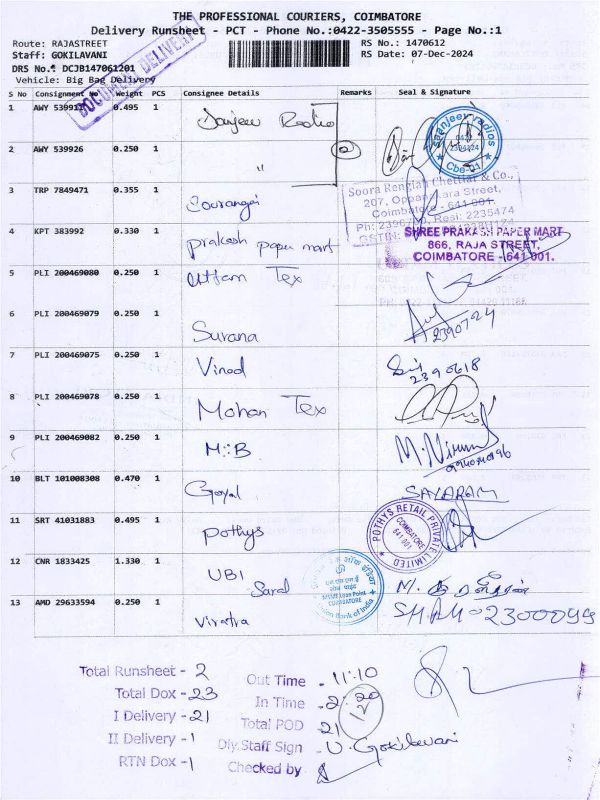 THE PROFESSIONAL COURIERS, COIMBATORE
Delivery Runsheet - PCT - Phone No.:0422-3505555 - Page No.:1
Route: RAJASTREET
Staff: GOKILAVANI
DRS No.: DCJB147061201
Vehicle: Big Bag Delivery
RS No.: 1470612
RS Date: 07-Dec-2024
DOCUMENT DELIVERY
S No Consignment No Weight PCS Consignee Details Remarks Seal & Signature
1 AWY 53991 0.495 1 Sanjeev Radio
saanjeev radios
Cbe-01
2 AWY 539926 0.250 1 "
3 TRP 7849471 0.355 1 Sourangai
Soora Rengiah Chettiar & Co.,
207, Oppanakara Street,
Coimbatore - 641 001.
Resi: 2235474
GSTIN:
4 KPT 383992 0.330 1 prakash paper mart
SHREE PRAKASH PAPER MART
866, RAJA STREET,
COIMBATORE - 641 001.
5 PLI 200469080 0.250 1 Uttam Tex
6 PLI 200469079 0.250 1 Surana
2390724
7 PLI 200469075 0.250 1 Vinod
2390618
8 PLI 200469078 0.250 1 Mohan Tex
9 PLI 200469082 0.250 1 M::B
M. Nirmal
10 BLT 101008308 0.470 1 Goyal SAYARAM
11 SRT 41031883 0.495 1 Pothys
POTHYS RETAIL PRIVATE LIMITED
COIMBATORE
641 001
12 CNR 1833425 1.330 1 UBI Saral
Loan Point
COIMBATORE
Union Bank of India
13 AMD 29633594 0.250 1 Viratra
Total Runsheet - 2
Total Dox - 23
I Delivery - 21
II Delivery - 1
RTN Dox - 1
Out Time - 11:10
In Time - 2:20
12
Total POD - 21
Dly.Staff Sign - U. Gokilavani
Checked by